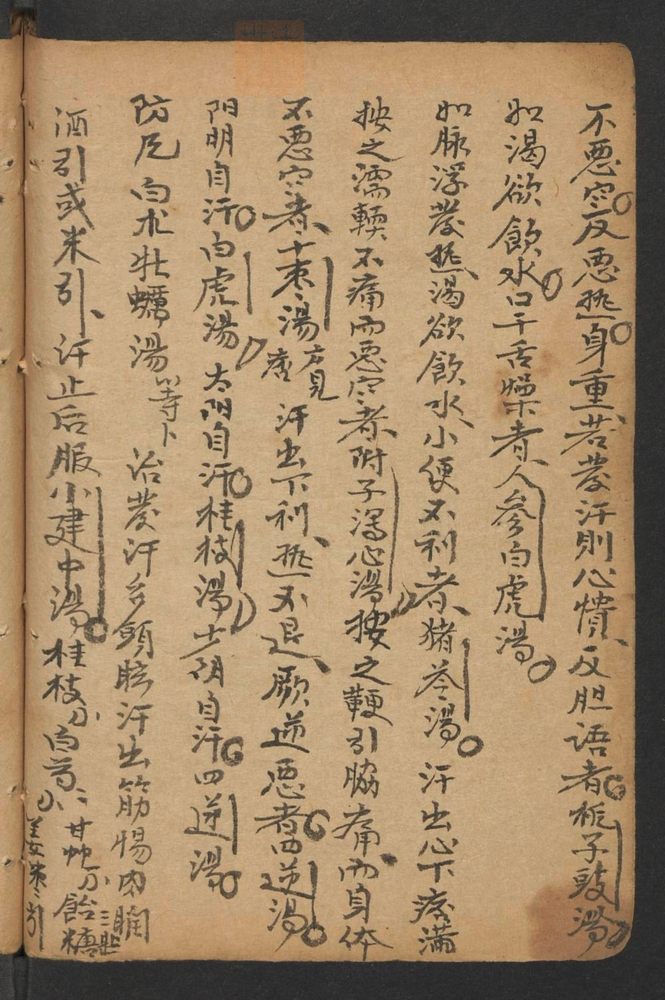 不悪寒反悪热身重若發汗則心憒反胆语者梔子豉湯
如渴欲飲水口干舌燥者人參白虎湯
如脉浮發热渴欲飲水小便不利者猪苓湯 汗出心下痞滿
按之濡輭不痛而悪寒者附子瀉心湯按之鞕引脇痛而身体
不悪寒者十枣湯方見 汗出下利热不退厥逆悪者四逆湯
阳明自汗白虎湯 太阳自汗桂枝湯少阴自汗四逆湯
防风白朮牡蠣湯等卜 治發汗多頭眩汗出筋惕肉瞤
酒引或米引汗止后服小建中湯桂枝 白芍 甘 飴糖 姜枣引